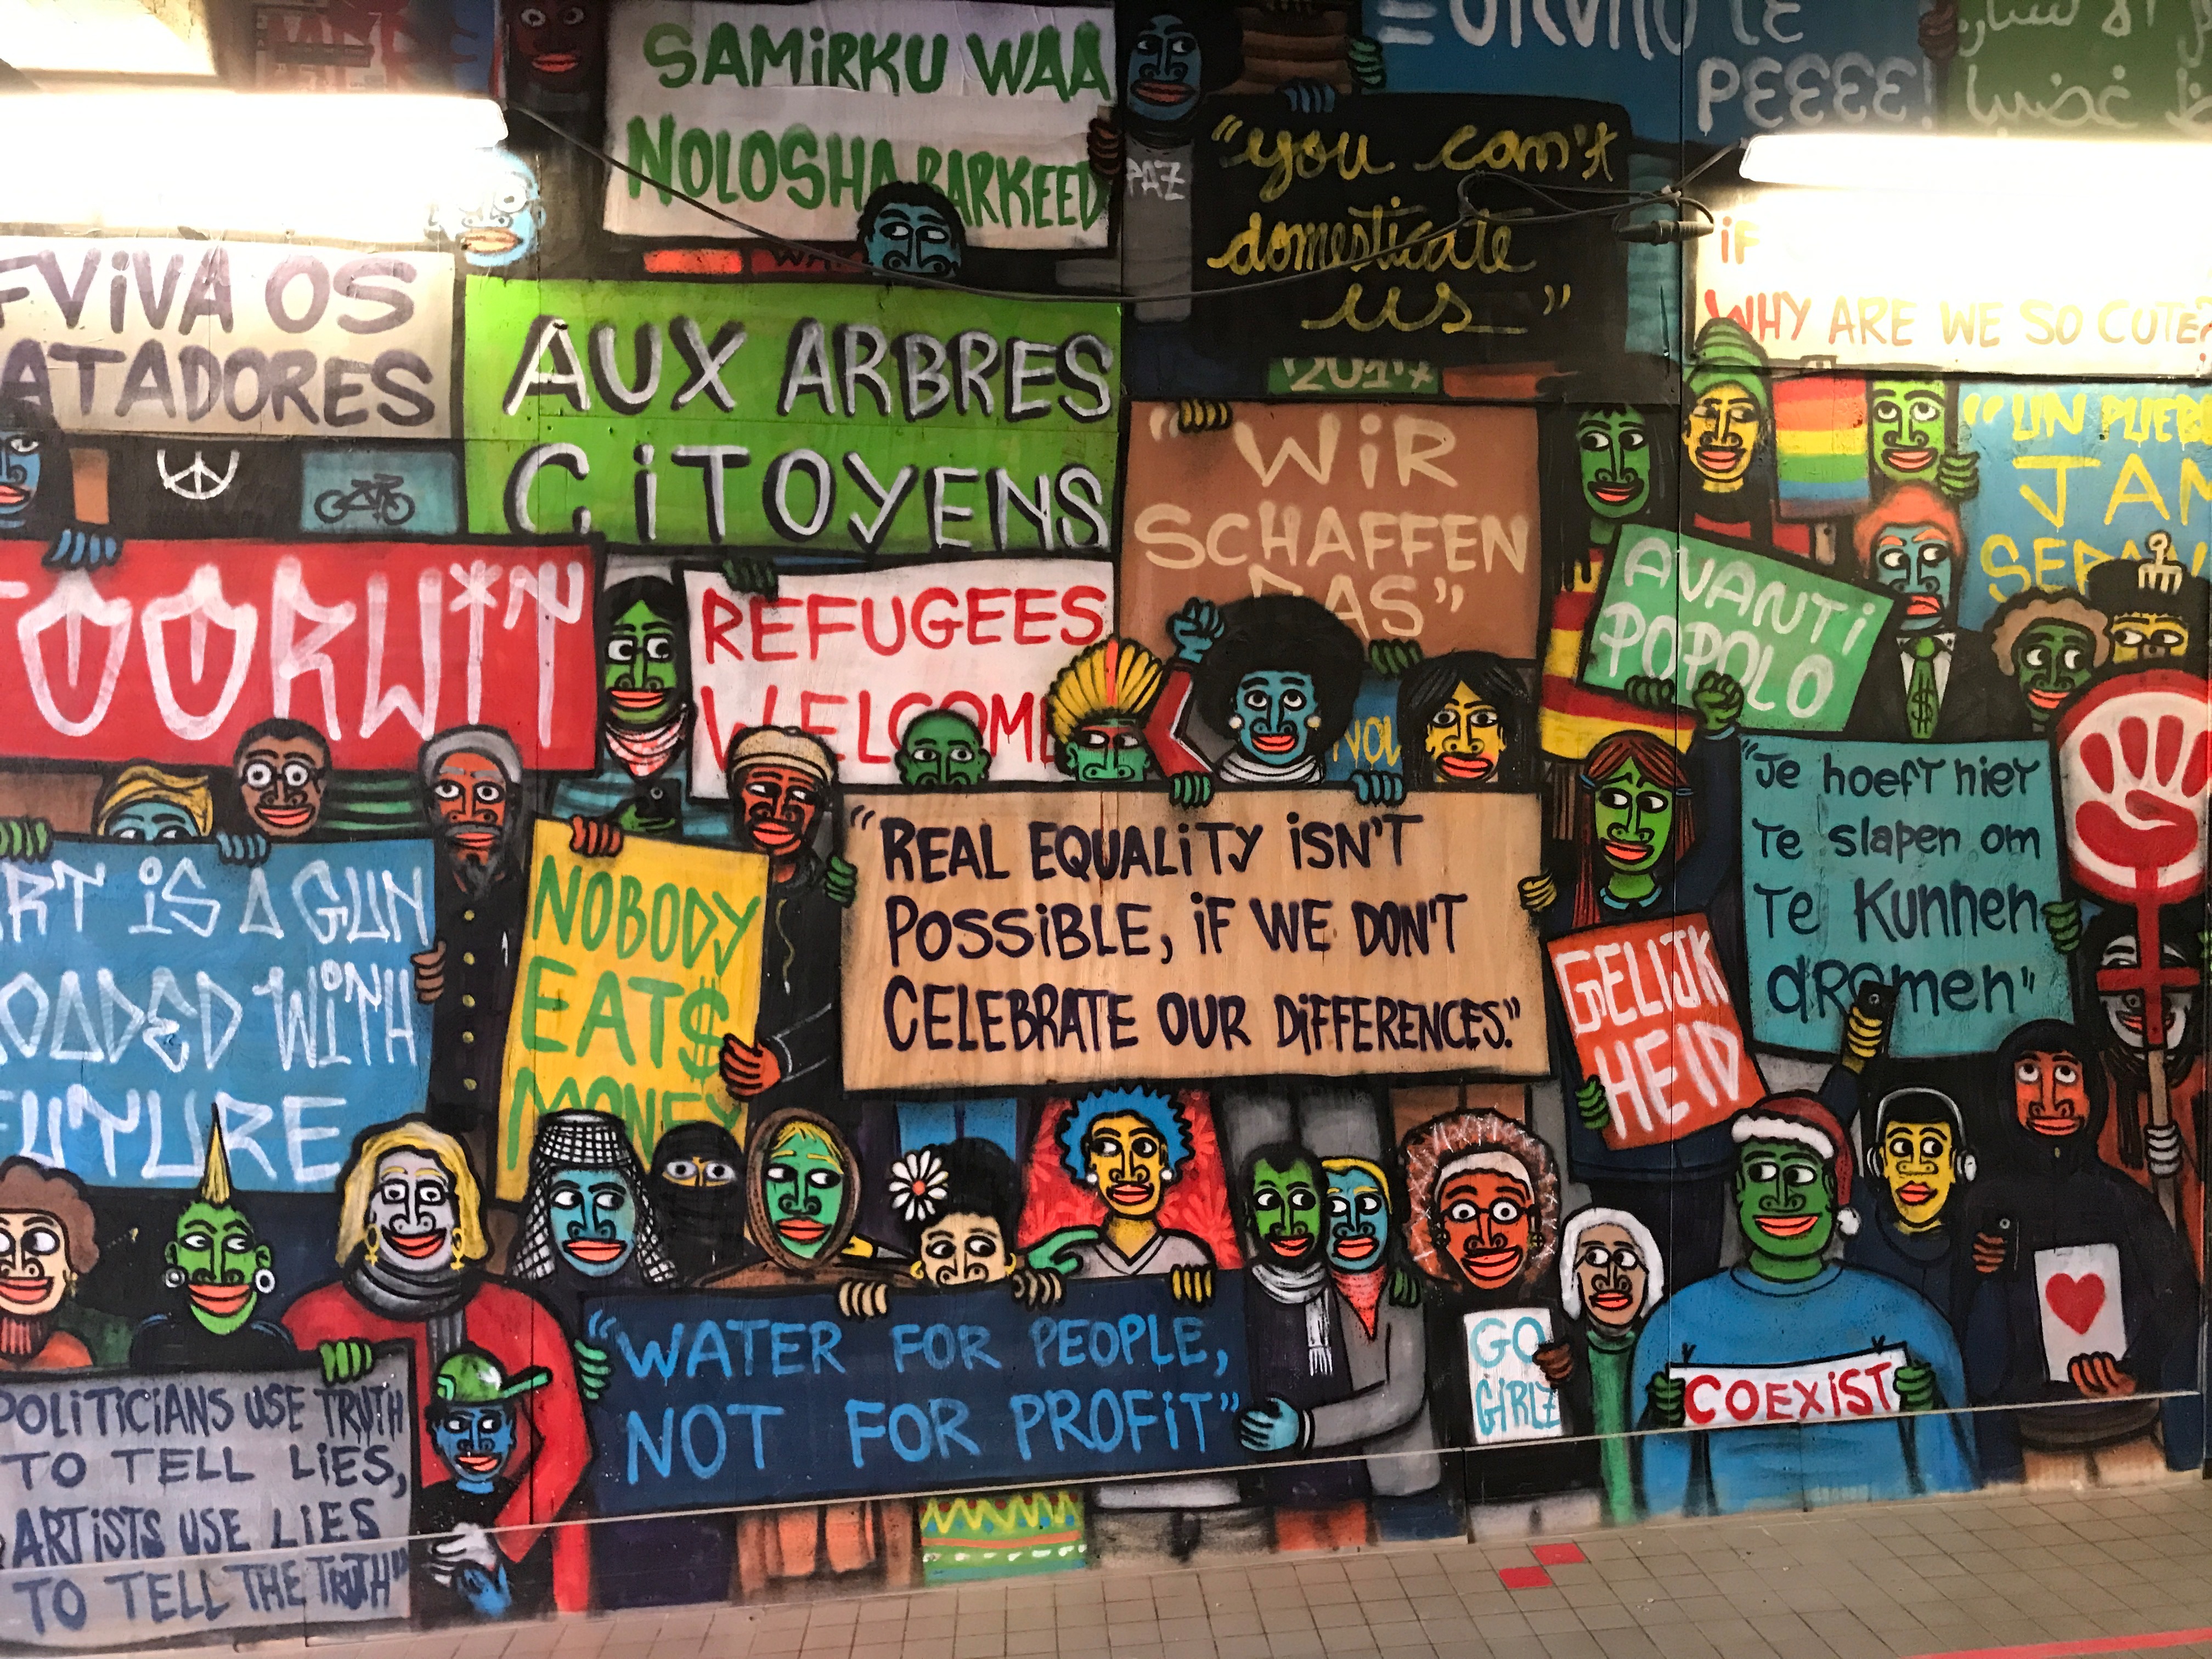 SAMiRKU WAA
NOLOSHA BARKEED
PAZ
"you can't
domesticate
us"
2017
PEEEE!
iF
WHY ARE WE SO CUTE?
ViVA OS
AUX ARBRES
CiTOYENS
"WiR
SCHAFFEN
DAS"
"UN
AVANTi
POPOLO
REFUGEES
WELCOME
"REAL EQUALiTY iSN'T
POSSiBLE, iF WE DON'T
CELEBRATE OUR DiFFERENCES."
"Je hoeft niet
Te slapen om
Te Kunnen
dRomen"
GELIJK
HEID
ART iS A GUN
LOADED WiTH
FUTURE
NOBODY
EAT$
MONEY
"WATER FOR PEOPLE,
NOT FOR PROFiT"
GO
GiRLZ
COEXiST
POLiTiCiANS USE TRUTH
TO TELL LiES,
ARTiSTS USE LiES
TO TELL THE TRUTH"